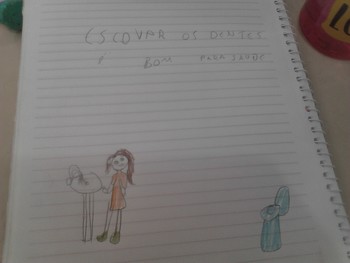 ESCOVAR OS DENTES
É BOM PARA SAUDE